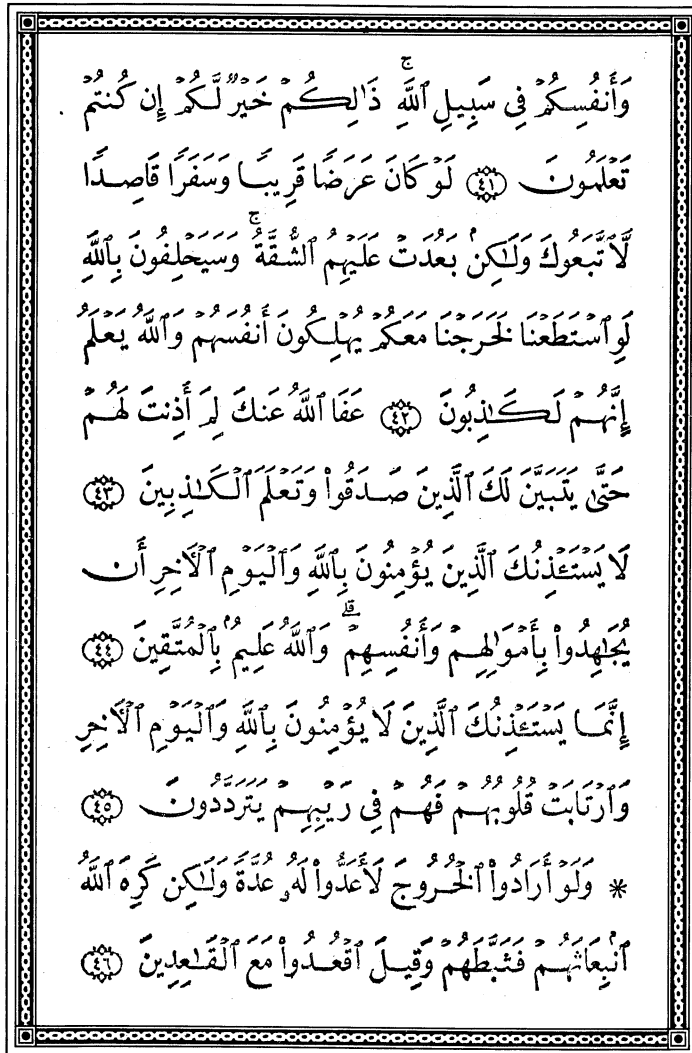 وَأَنفُسِكُمۡ فِي سَبِيلِ ٱللَّهِۚ ذَٰلِكُمۡ خَيۡرٞ لَّكُمۡ إِن كُنتُمۡ
تَعۡلَمُونَ ٤١ لَوۡ كَانَ عَرَضٗا قَرِيبٗا وَسَفَرٗا قَاصِدٗا
لَّٱتَّبَعُوكَ وَلَٰكِنۢ بَعُدَتۡ عَلَيۡهِمُ ٱلشُّقَّةُۚ وَسَيَحۡلِفُونَ بِٱللَّهِ
لَوِ ٱسۡتَطَعۡنَا لَخَرَجۡنَا مَعَكُمۡ يُهۡلِكُونَ أَنفُسَهُمۡ وَٱللَّهُ يَعۡلَمُ
إِنَّهُمۡ لَكَٰذِبُونَ ٤٢ عَفَا ٱللَّهُ عَنكَ لِمَ أَذِنتَ لَهُمۡ
حَتَّىٰ يَتَبَيَّنَ لَكَ ٱلَّذِينَ صَدَقُواْ وَتَعۡلَمَ ٱلۡكَٰذِبِينَ ٤٣
لَا يَسۡتَـٔۡذِنُكَ ٱلَّذِينَ يُؤۡمِنُونَ بِٱللَّهِ وَٱلۡيَوۡمِ ٱلۡأٓخِرِ أَن
يُجَٰهِدُواْ بِأَمۡوَٰلِهِمۡ وَأَنفُسِهِمۡۗ وَٱللَّهُ عَلِيمُۢ بِٱلۡمُتَّقِينَ ٤٤
إِنَّمَا يَسۡتَـٔۡذِنُكَ ٱلَّذِينَ لَا يُؤۡمِنُونَ بِٱللَّهِ وَٱلۡيَوۡمِ ٱلۡأٓخِرِ
وَٱرۡتَابَتۡ قُلُوبُهُمۡ فَهُمۡ فِي رَيۡبِهِمۡ يَتَرَدَّدُونَ ٤٥
* وَلَوۡ أَرَادُواْ ٱلۡخُرُوجَ لَأَعَدُّواْ لَهُۥ عُدَّةٗ وَلَٰكِن كَرِهَ ٱللَّهُ
ٱنۢبِعَاثَهُمۡ فَثَبَّطَهُمۡ وَقِيلَ ٱقۡعُدُواْ مَعَ ٱلۡقَٰعِدِينَ ٤٦